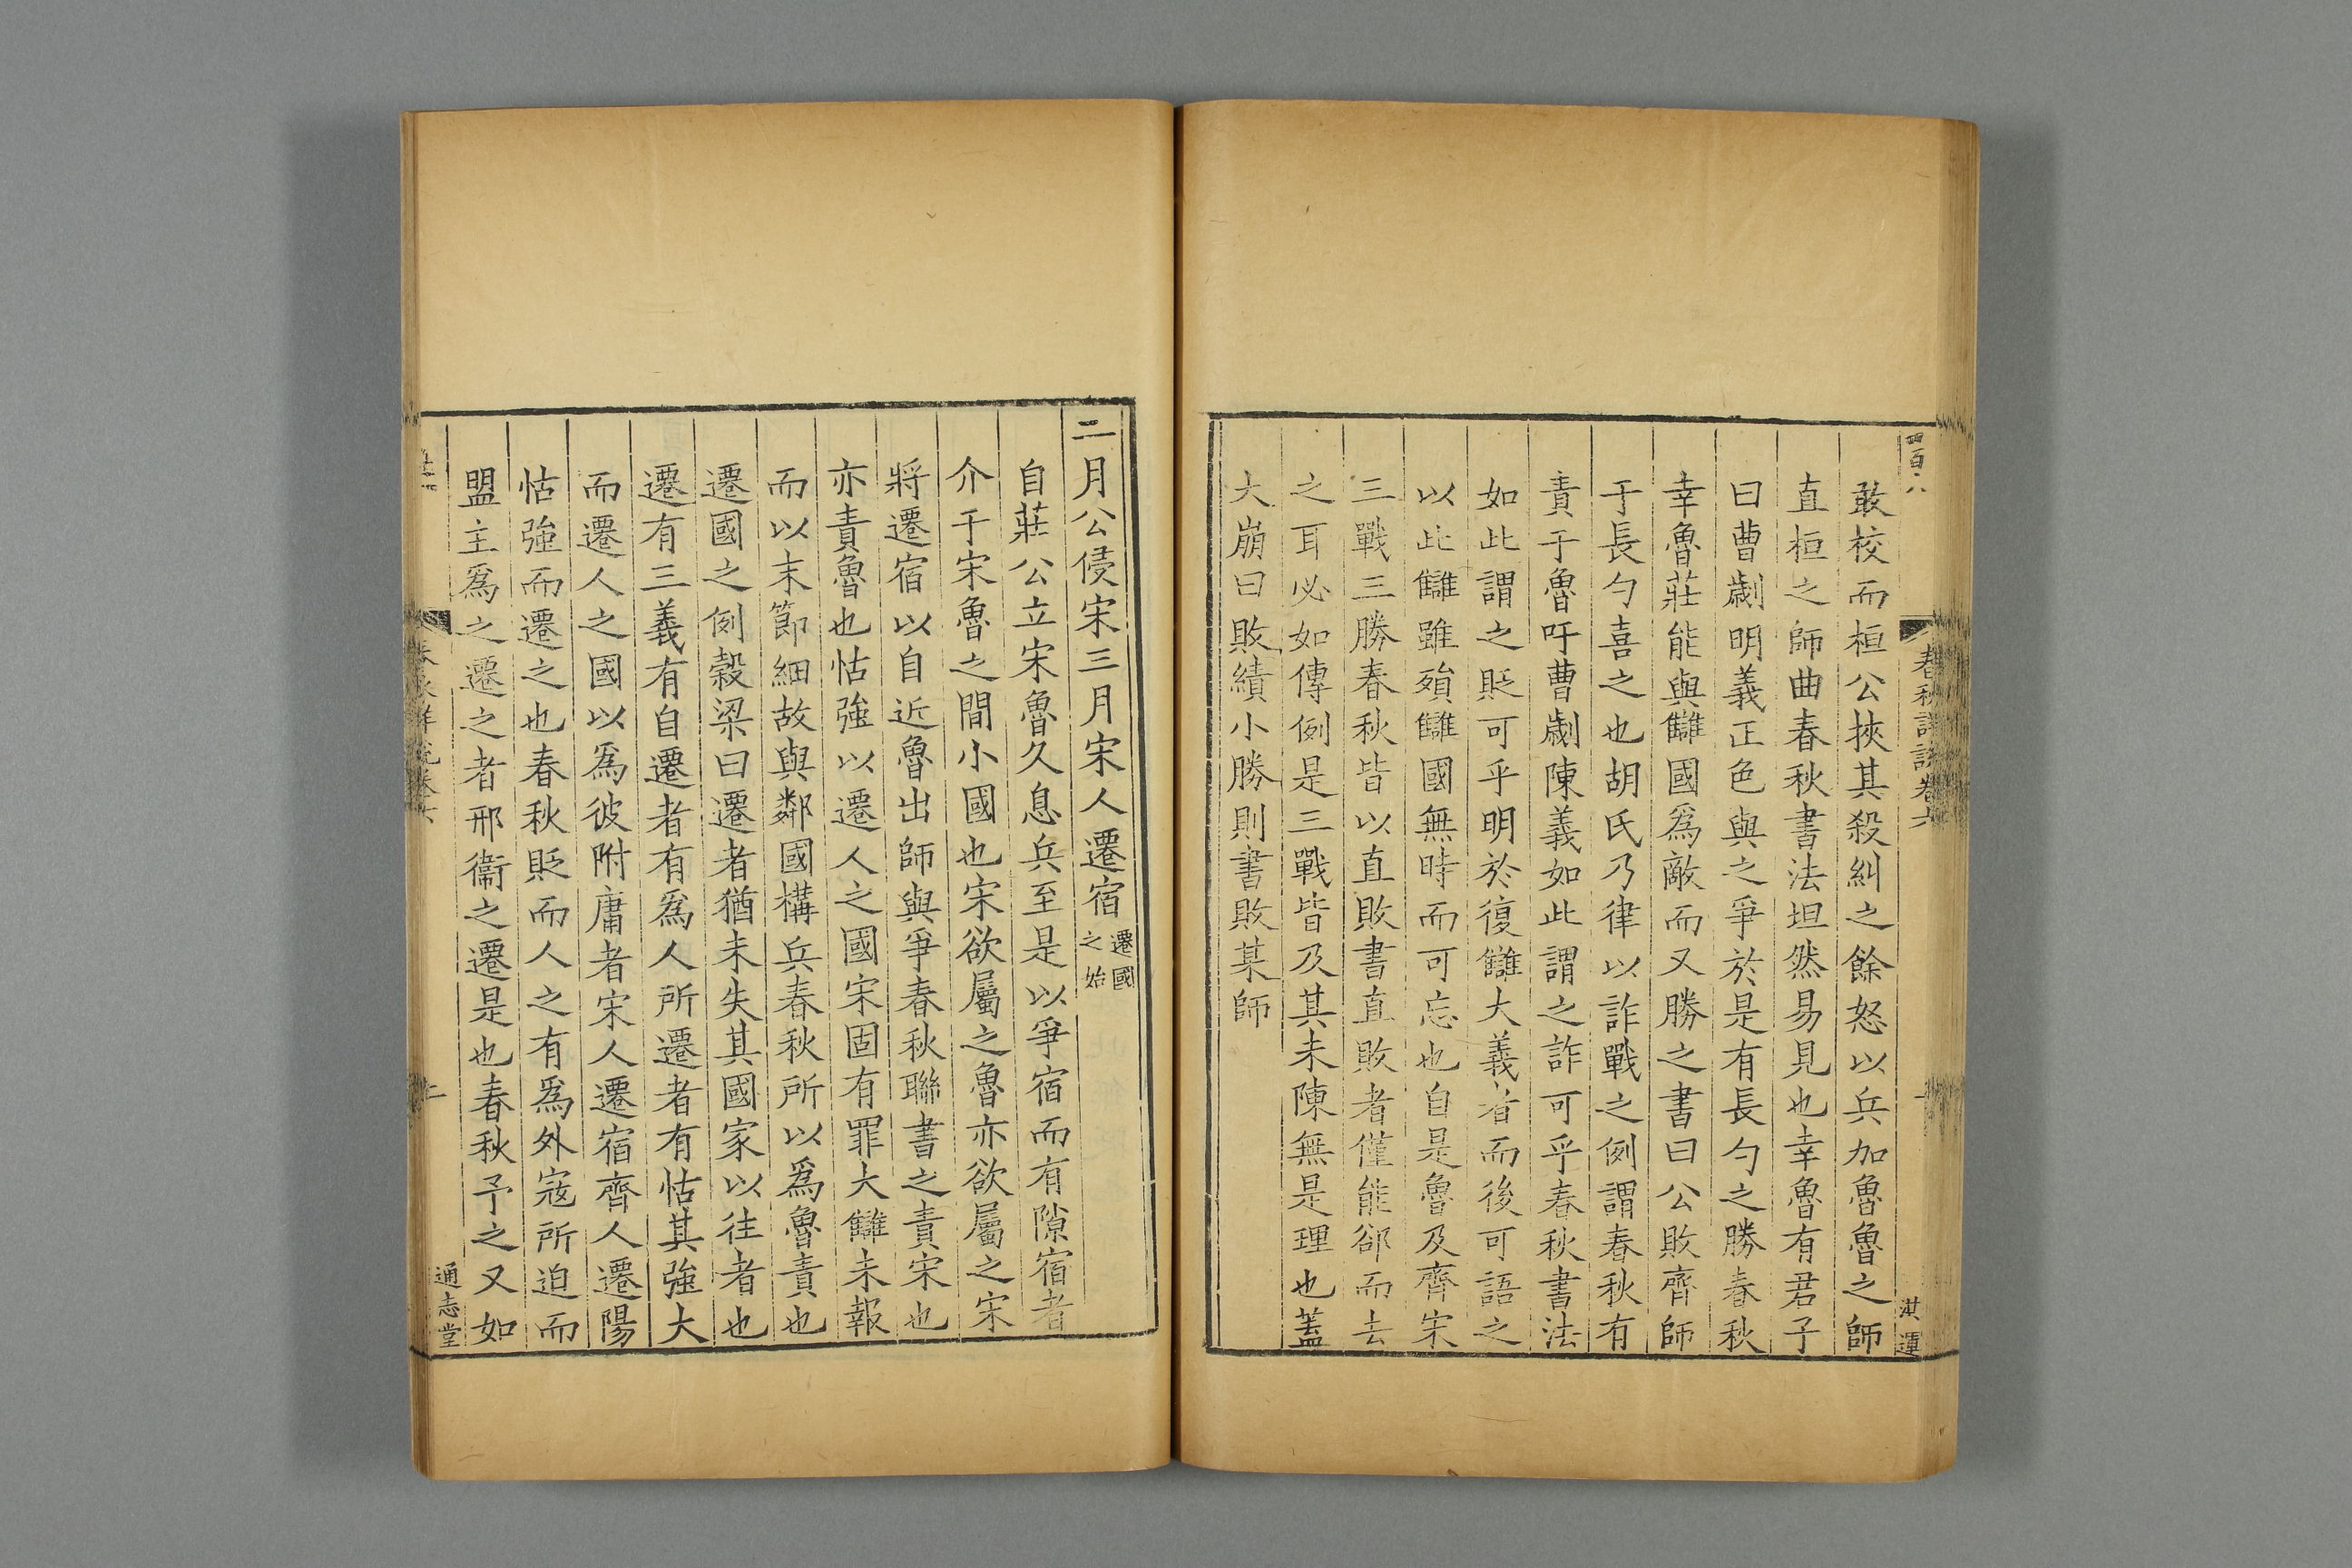 敢校而桓公挾其殺糾之餘怒以兵加魯魯之師
直桓之師曲春秋書法坦然易見也幸魯有君子
曰曹劌明義正色與之爭於是有長勺之勝春秋
幸魯莊能與讎國爲敵而又勝之書曰公敗齊師
于長勺喜之也胡氏乃律以詐戰之例謂春秋有
責于魯吁曹劌陳義如此謂之詐可乎春秋書法
如此謂之貶可乎明於復讎大義者而後可語之
以此讎雖殞讎國無時而可忘也自是魯及齊宋
三戰三勝春秋皆以直敗書直敗者僅能郤而去
之耳必如傳例是三戰皆及其未陳無是理也蓋
大崩曰敗績小勝則書敗某師
二月公侵宋三月宋人遷宿遷國之始
自莊公立宋魯久息兵至是以爭宿而有隙宿者
介于宋魯之間小國也宋欲屬之魯亦欲屬之宋
將遷宿以自近魯出師與爭春秋聯書之責宋也
亦責魯也怙強以遷人之國宋固有罪大讎未報
而以末節細故與鄰國構兵春秋所以爲魯責也
遷國之例穀梁曰遷者猶未失其國家以往者也
遷有三義有自遷者有爲人所遷者有怙其強大
而遷人之國以爲彼附庸者宋人遷宿齊人遷陽
怙強而遷之也春秋貶而人之有爲外寇所迫而
盟主爲之遷之者邢衞之遷是也春秋予之又如
通志堂